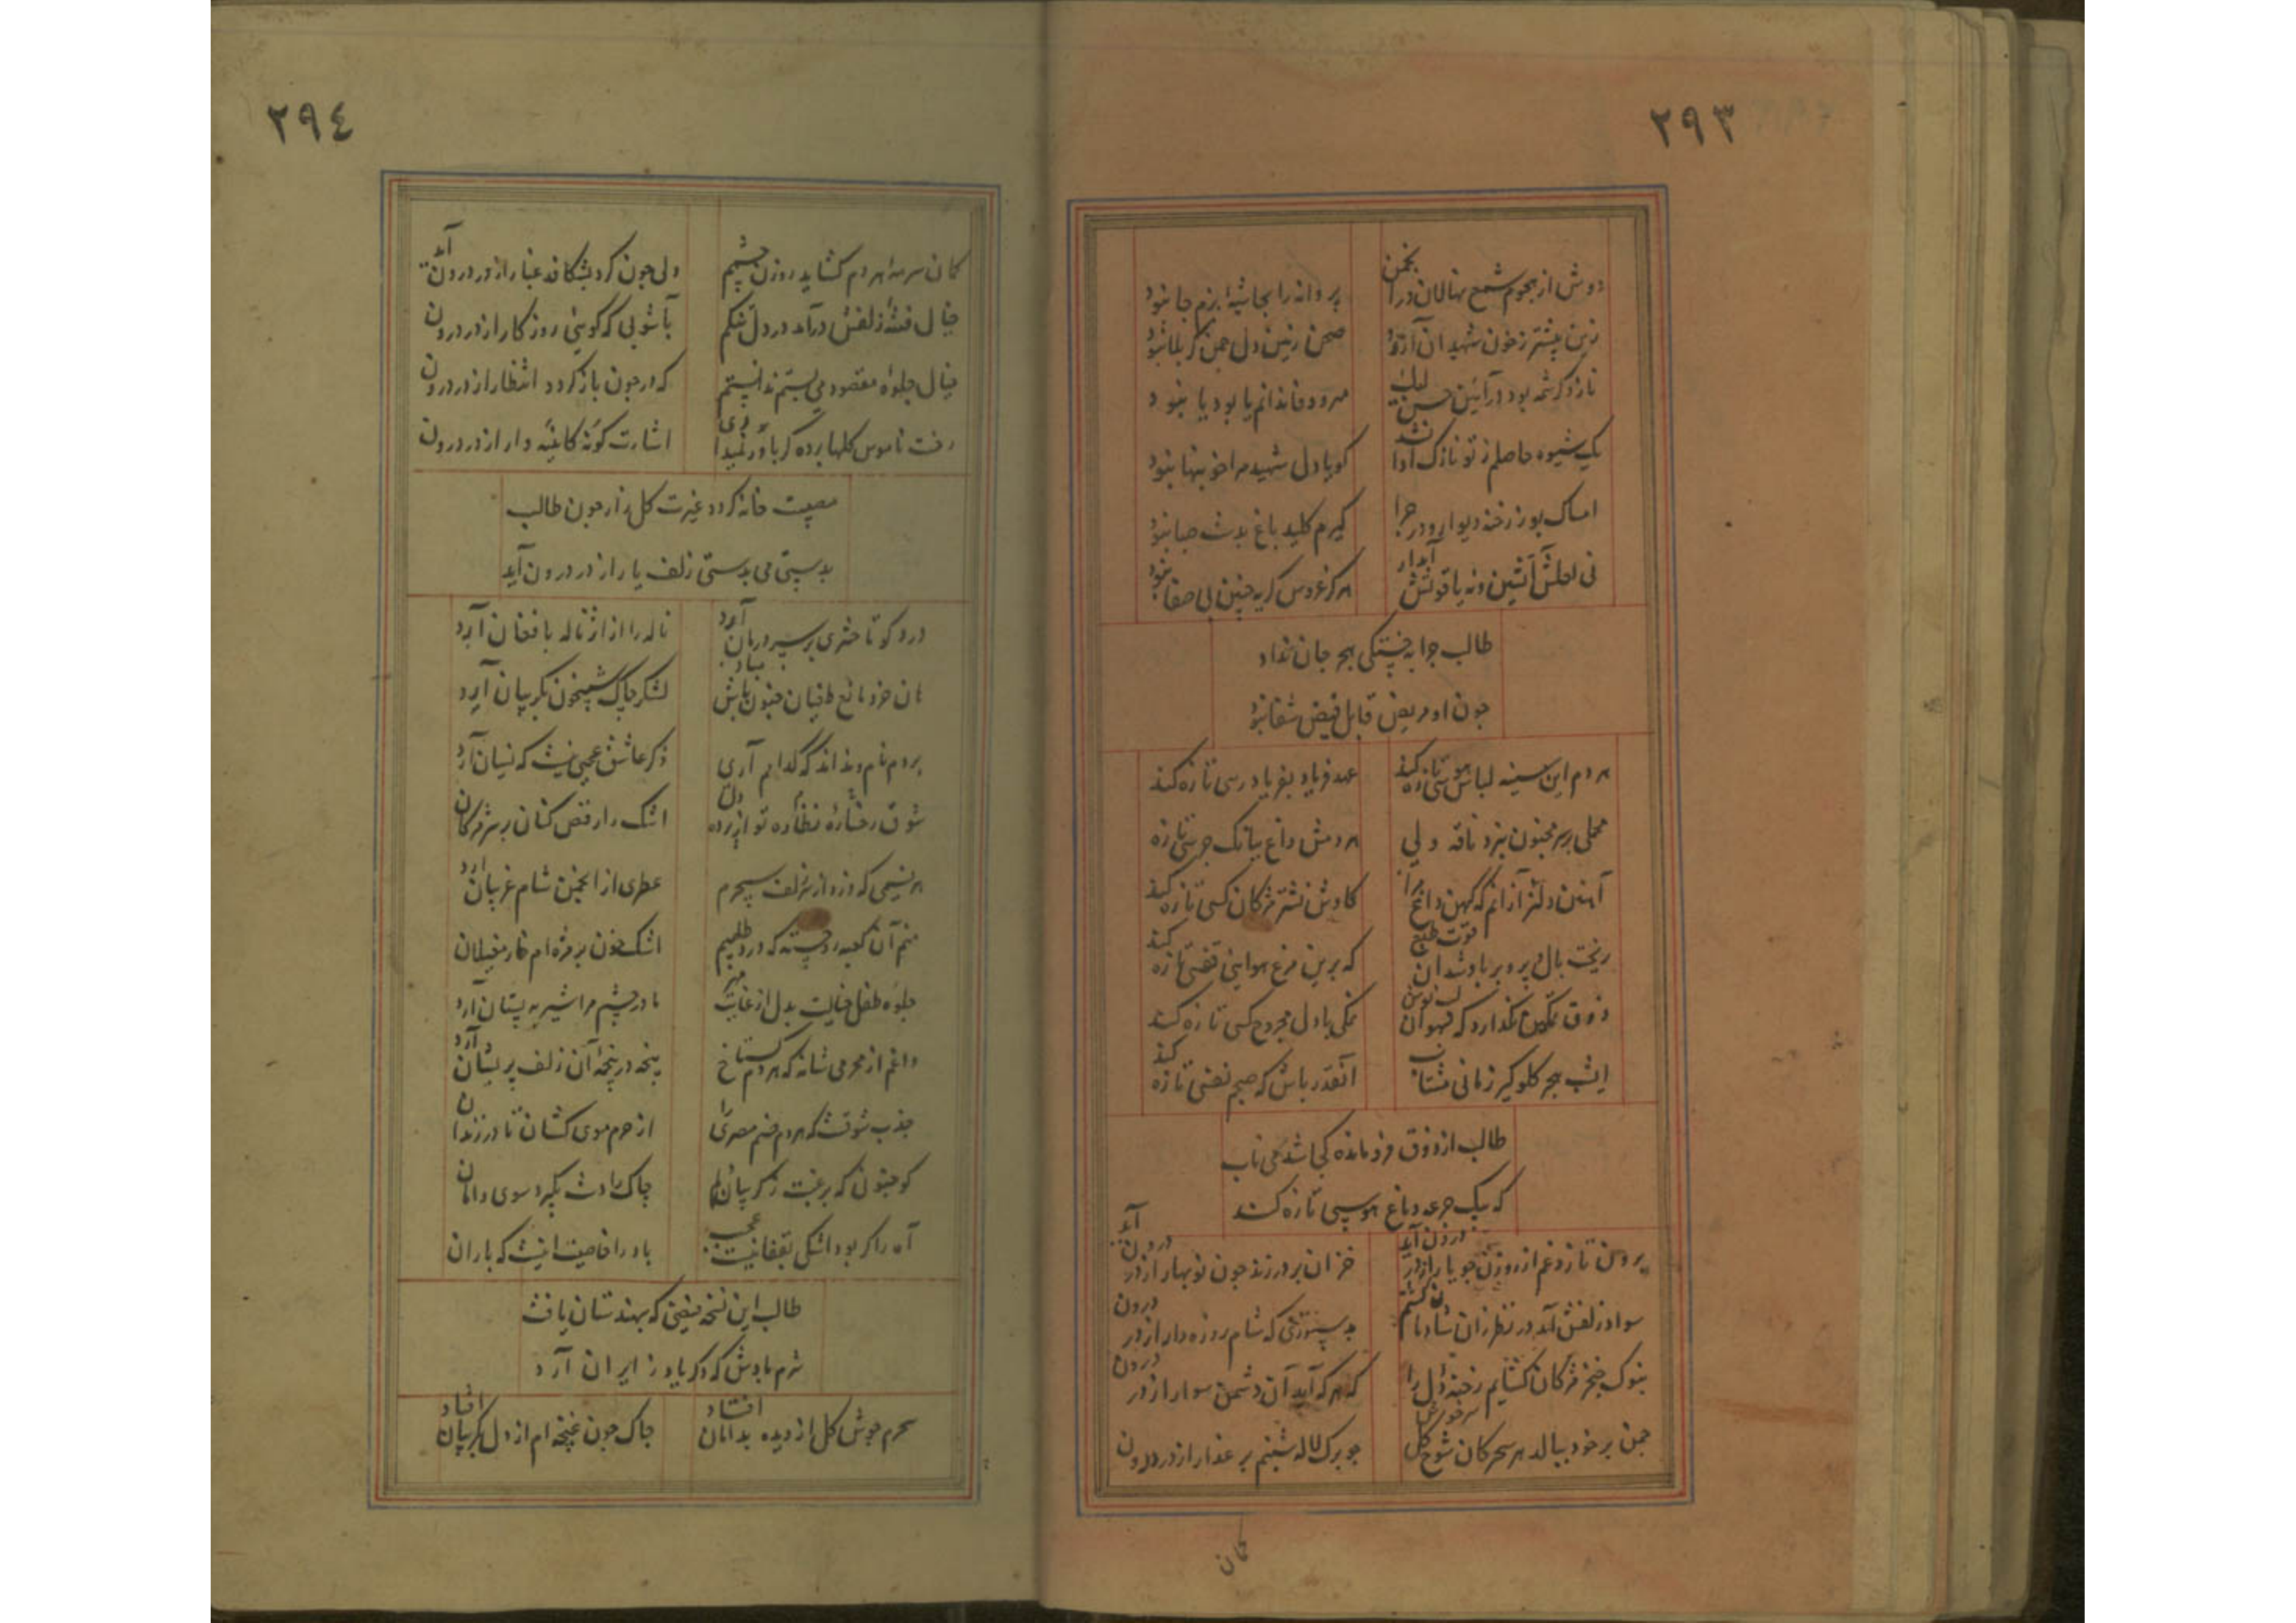 ۲۹۳
دوش از هجوم شمع نهالان در انجمن
پروانه را بجا شبه بزم جا نبود
زین پیشتر ز خون شهیدان آرزو
صحن زمین دل چمن کربلا نبود
ناز و کرشمه بود در آئین حسن لیک
مهر و وفا ندانم یا بود یا نبود
یک شیوه حاصلم ز تو نازک ادا نشد
کویا دل شهید مرا خو بنها نبود
امساک بو ز رخنه دیوار و در چرا
کیرم کلید باغ بدست صبا نبود
نی لعلش آتشین و نه یاقوتش آبدار
هرکز عروس کریه چنین بی صفا نبود
طالب چرا به خستکی هجر جان نداد
چون او مریض قابل فیض شفا نبود
هردم این سینه لباس هوسی تازه کند
عهد فریاد بفریادرسی تازه کند
محملی بر سر مجنون نبرد ناقه ولی
هردمش داغ ببانک جرسی تازه
آهنین دلتر از آنم که کهن داغ مرا
کاوش نشتر مژکان کسی تازه کند
ریخت بال و پر و بر باد شد آن قوت طبع
که برین مرغ هوایی قفسی تازه کند
ذوق تمکین نکذارد که قهوان لب نوش
نمکی با دل مجروح کسی تازه کند
ای شب هجر کلوکیر زمانی مشتاب
آنقدر باش که صبحم نفسی تازه کند
طالب از ذوق فرو مانده کجا شد می ناب
که بیک جرعه دماغ هوسی تازه کند
برون تازد غم از روزن چو یار از در درون آید
خزان بر در زند چون نوبهار از در درون آید
سواد زلفش آمد در نظر زان شادمان کشتم
بدستوری که شام روزه دار از در درون
بنوک خنجر مژکان کشایم رخنه دل را
که هر که آید آن دشمن سوار از در درون
چمن بر خود ببالد هر سحر کان شوخ کل
چو برک لاله شبنم بر عذار از در درون
کمان
۲۹٤
کمان سرمه هردم کشاید روزن چشمم
ولی چون کرد بشکافد غبار از در درون آید
خیال فتنه زلفش درآمد در دل تنکم
بآشوبی که کویی روزکار از در درون
خیال جلوه مقصود می بستم ندانستم
که در چون باز کردد انتظار از در درون
رفت ناموس کلها پرده کر باور نمیداری
اشارت کونه کائینه دار از در درون
مصیبت خانه کردد غیرت کلزار چون طالب
بدستی می بدستی زلف یار از در درون آید
درد کو تا حشری بر سر درمان آرد
ناله را از اثر ناله بافغان آرد
هان خرد مانع طغیان جنون باش مباد
لشکر چاک شبیخون بکریبان آرد
بردم نام و نداند که کدام آری
ذکر عاشق عجبی نیست که نسیان آرد
شوق رخساره نظاره تو از پرده دل
اشک را رقص کنان بر سر مژکان
هر نسیمی که وزد از سر زلف سحرم
عطری از انجمن شام غریبان آرد
منم آن کعبه رو خسته که در هر طلبم
اشک خون بر مژه ام خار مغیلان
جلوه طفل خیالت بدل از غایت مهر
مادر چشم مرا شیر به پستان آرد
داغم از محرمی شانه که هردم کستاخ
پنجه در پنجه آن زلف پریشان آرد
جذب شوقست که هردم صنم مصری را
از حرم موی کشان تا در زندان
کو جنونی که برغبت ز کریبان دلم
چاک را دست بکیرد سوی دامان
آه را کر بود اشکی بقفا نیست عجب
باد را خاصیت اینست که باران
طالب این نسخه فیضی که بهندستان یافت
شرم بادش که دکر یاد ز ایران آرد
سحرم جوش کل از دیده بدامان افتاد
چاک چون غنچه ام از دل بکریبان افتاد